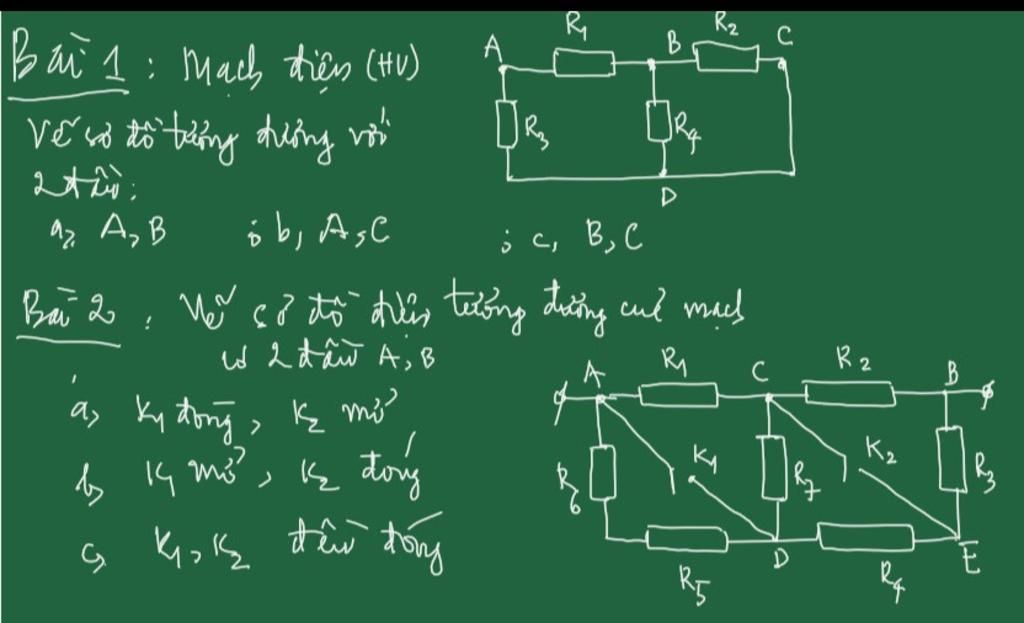 Bài 1 : Mạch điện (HV)
Vẽ sơ đồ tương đương với
2 đầu:
a, A, B ; b, A, C ; c, B, C
R1 R2
A B C
R3 R4
D
Bài 2 : Vẽ sơ đồ điện tương đương của mạch
có 2 đầu A, B
a, K1 đóng, K2 mở
b, K1 mở, K2 đóng
c, K1, K2 đều đóng
A R1 C R2 B
R6 K1 R7 K2 R3
D E
R5 R4